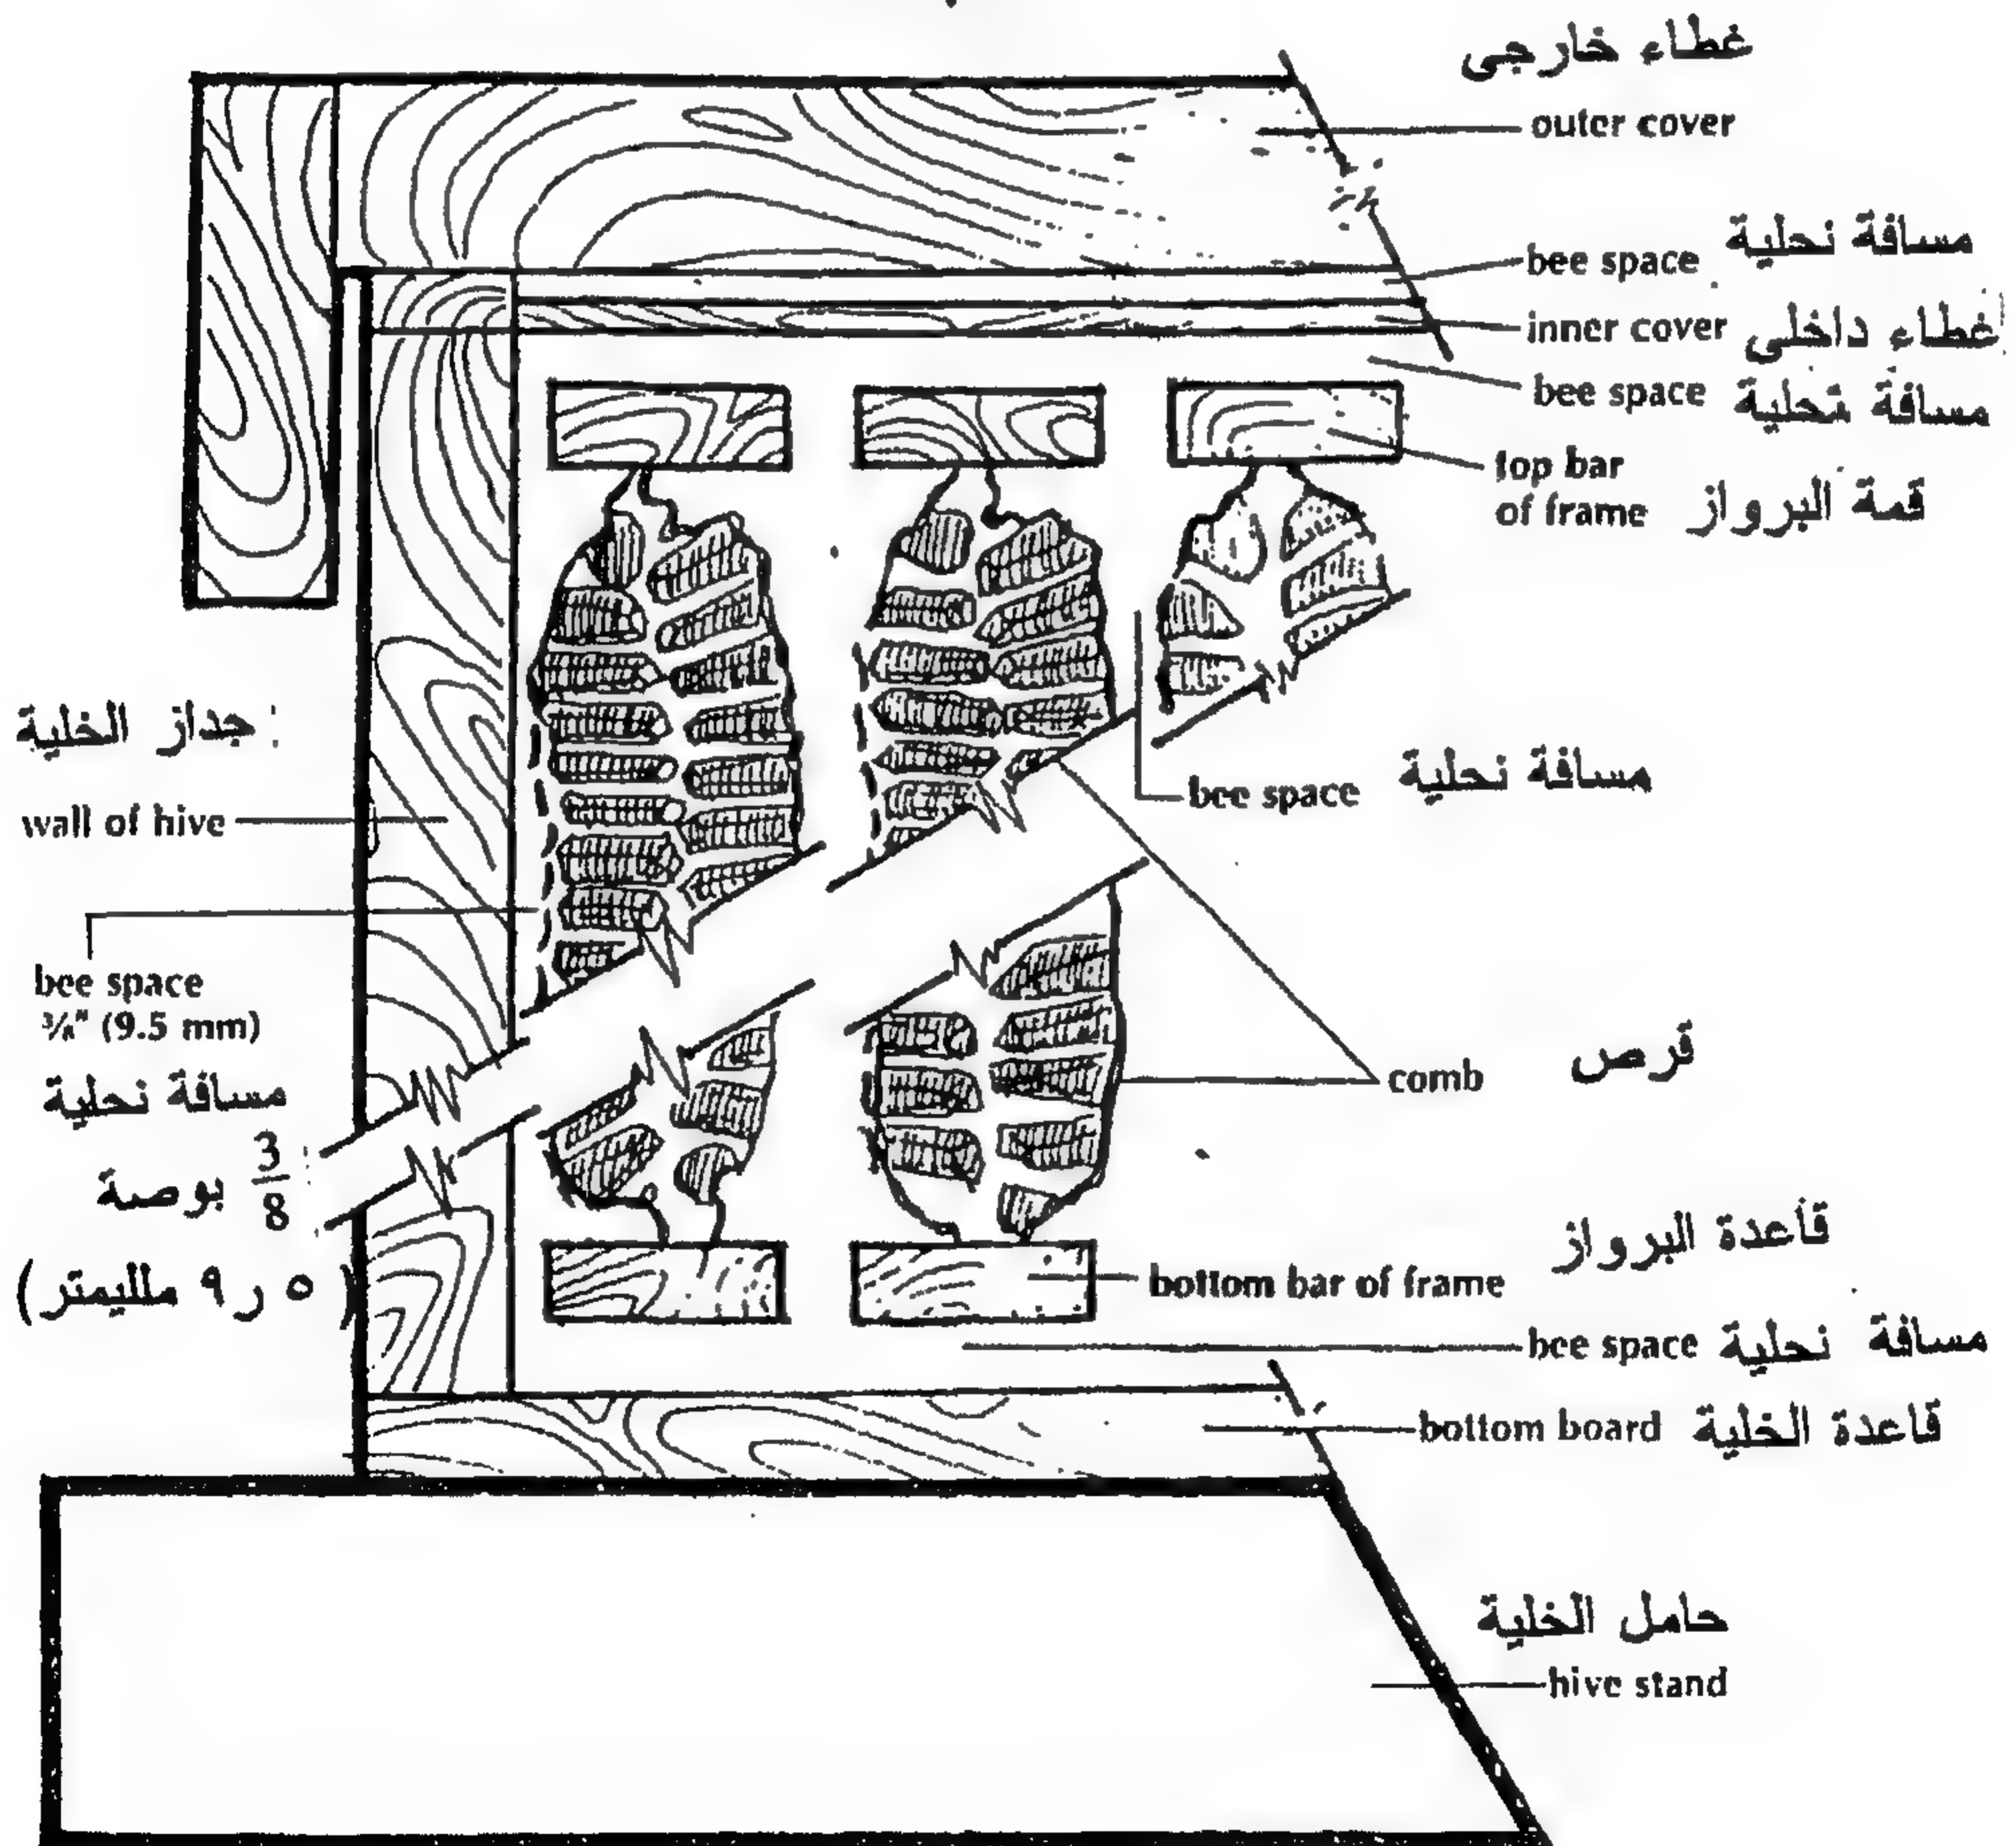 غطاء خارجى
outer cover
bee space مسافة نحلية
inner cover غطاء داخلى
bee space مسافة نحلية
top bar
of frame قمة البرواز
جداز الخلية
wall of hive
bee space مسافة نحلية
bee space
3/8" (9.5 mm)
مسافة نحلية
3/8 بوصة
(٥ ر٩ ملليمتر)
comb قرص
قاعدة البرواز
bottom bar of frame
bee space مسافة نحلية
bottom board قاعدة الخلية
حامل الخلية
hive stand